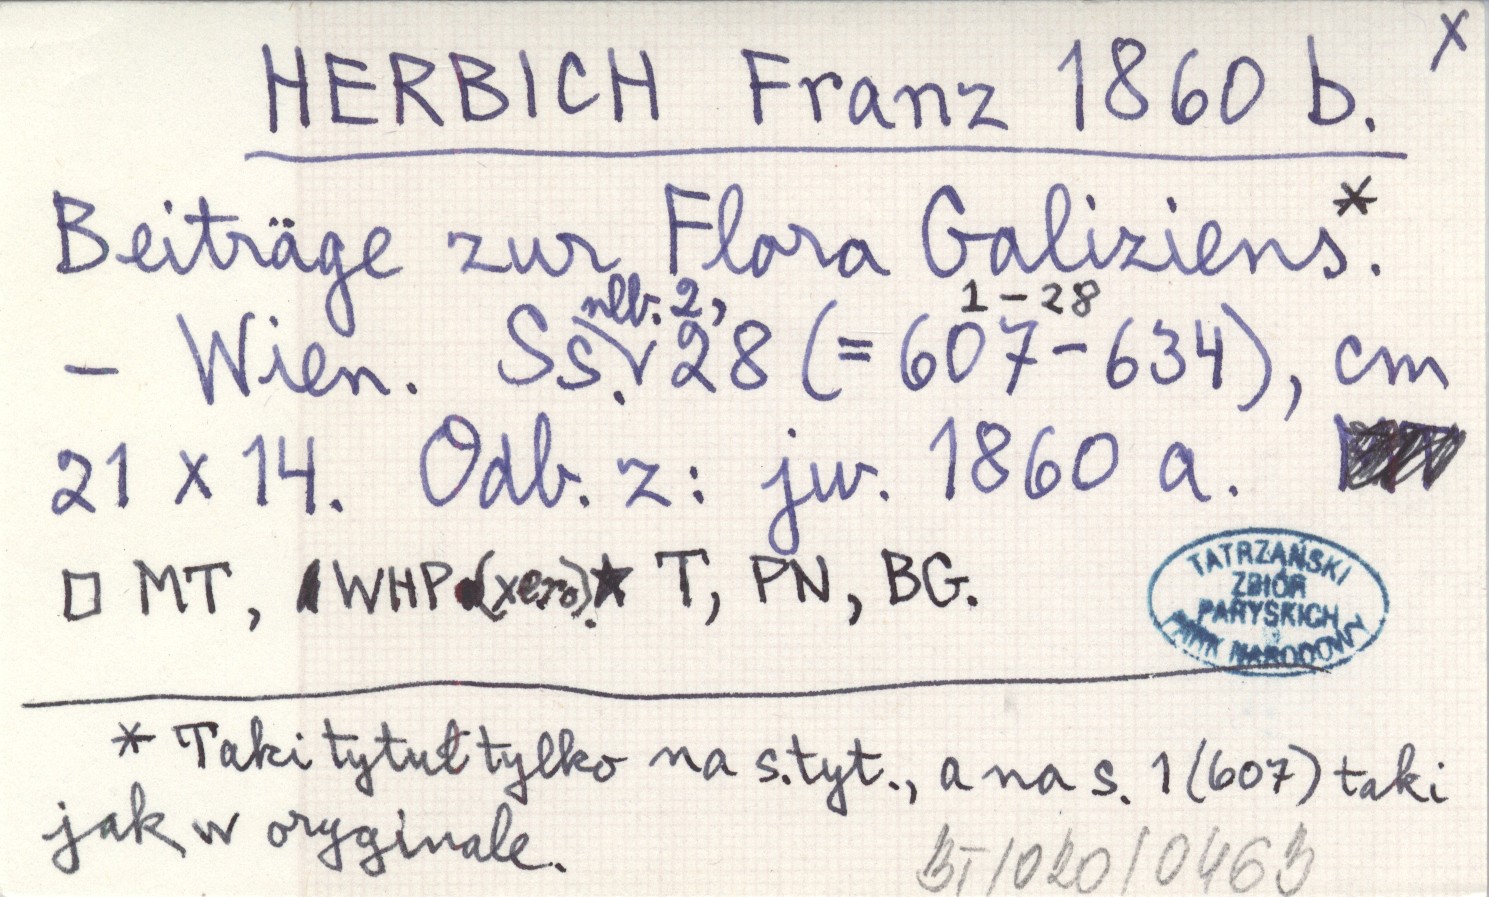 x
HERBICH Franz 1860 b.
Beiträge zur Flora Galiziens.*
nlb. 2, 1-28
- Wien. Ss. 28 (= 607-634), cm
21 x 14. Odb. z: jw. 1860 a.
□ MT, WHP (xero). T, PN, BG.
TATRZAŃSKI
ZBIÓR
PARYSKICH
PARK NARODOWY
* Taki tytuł tylko na s. tyt., a na s. 1 (607) taki
jak w oryginale.
/020/0463